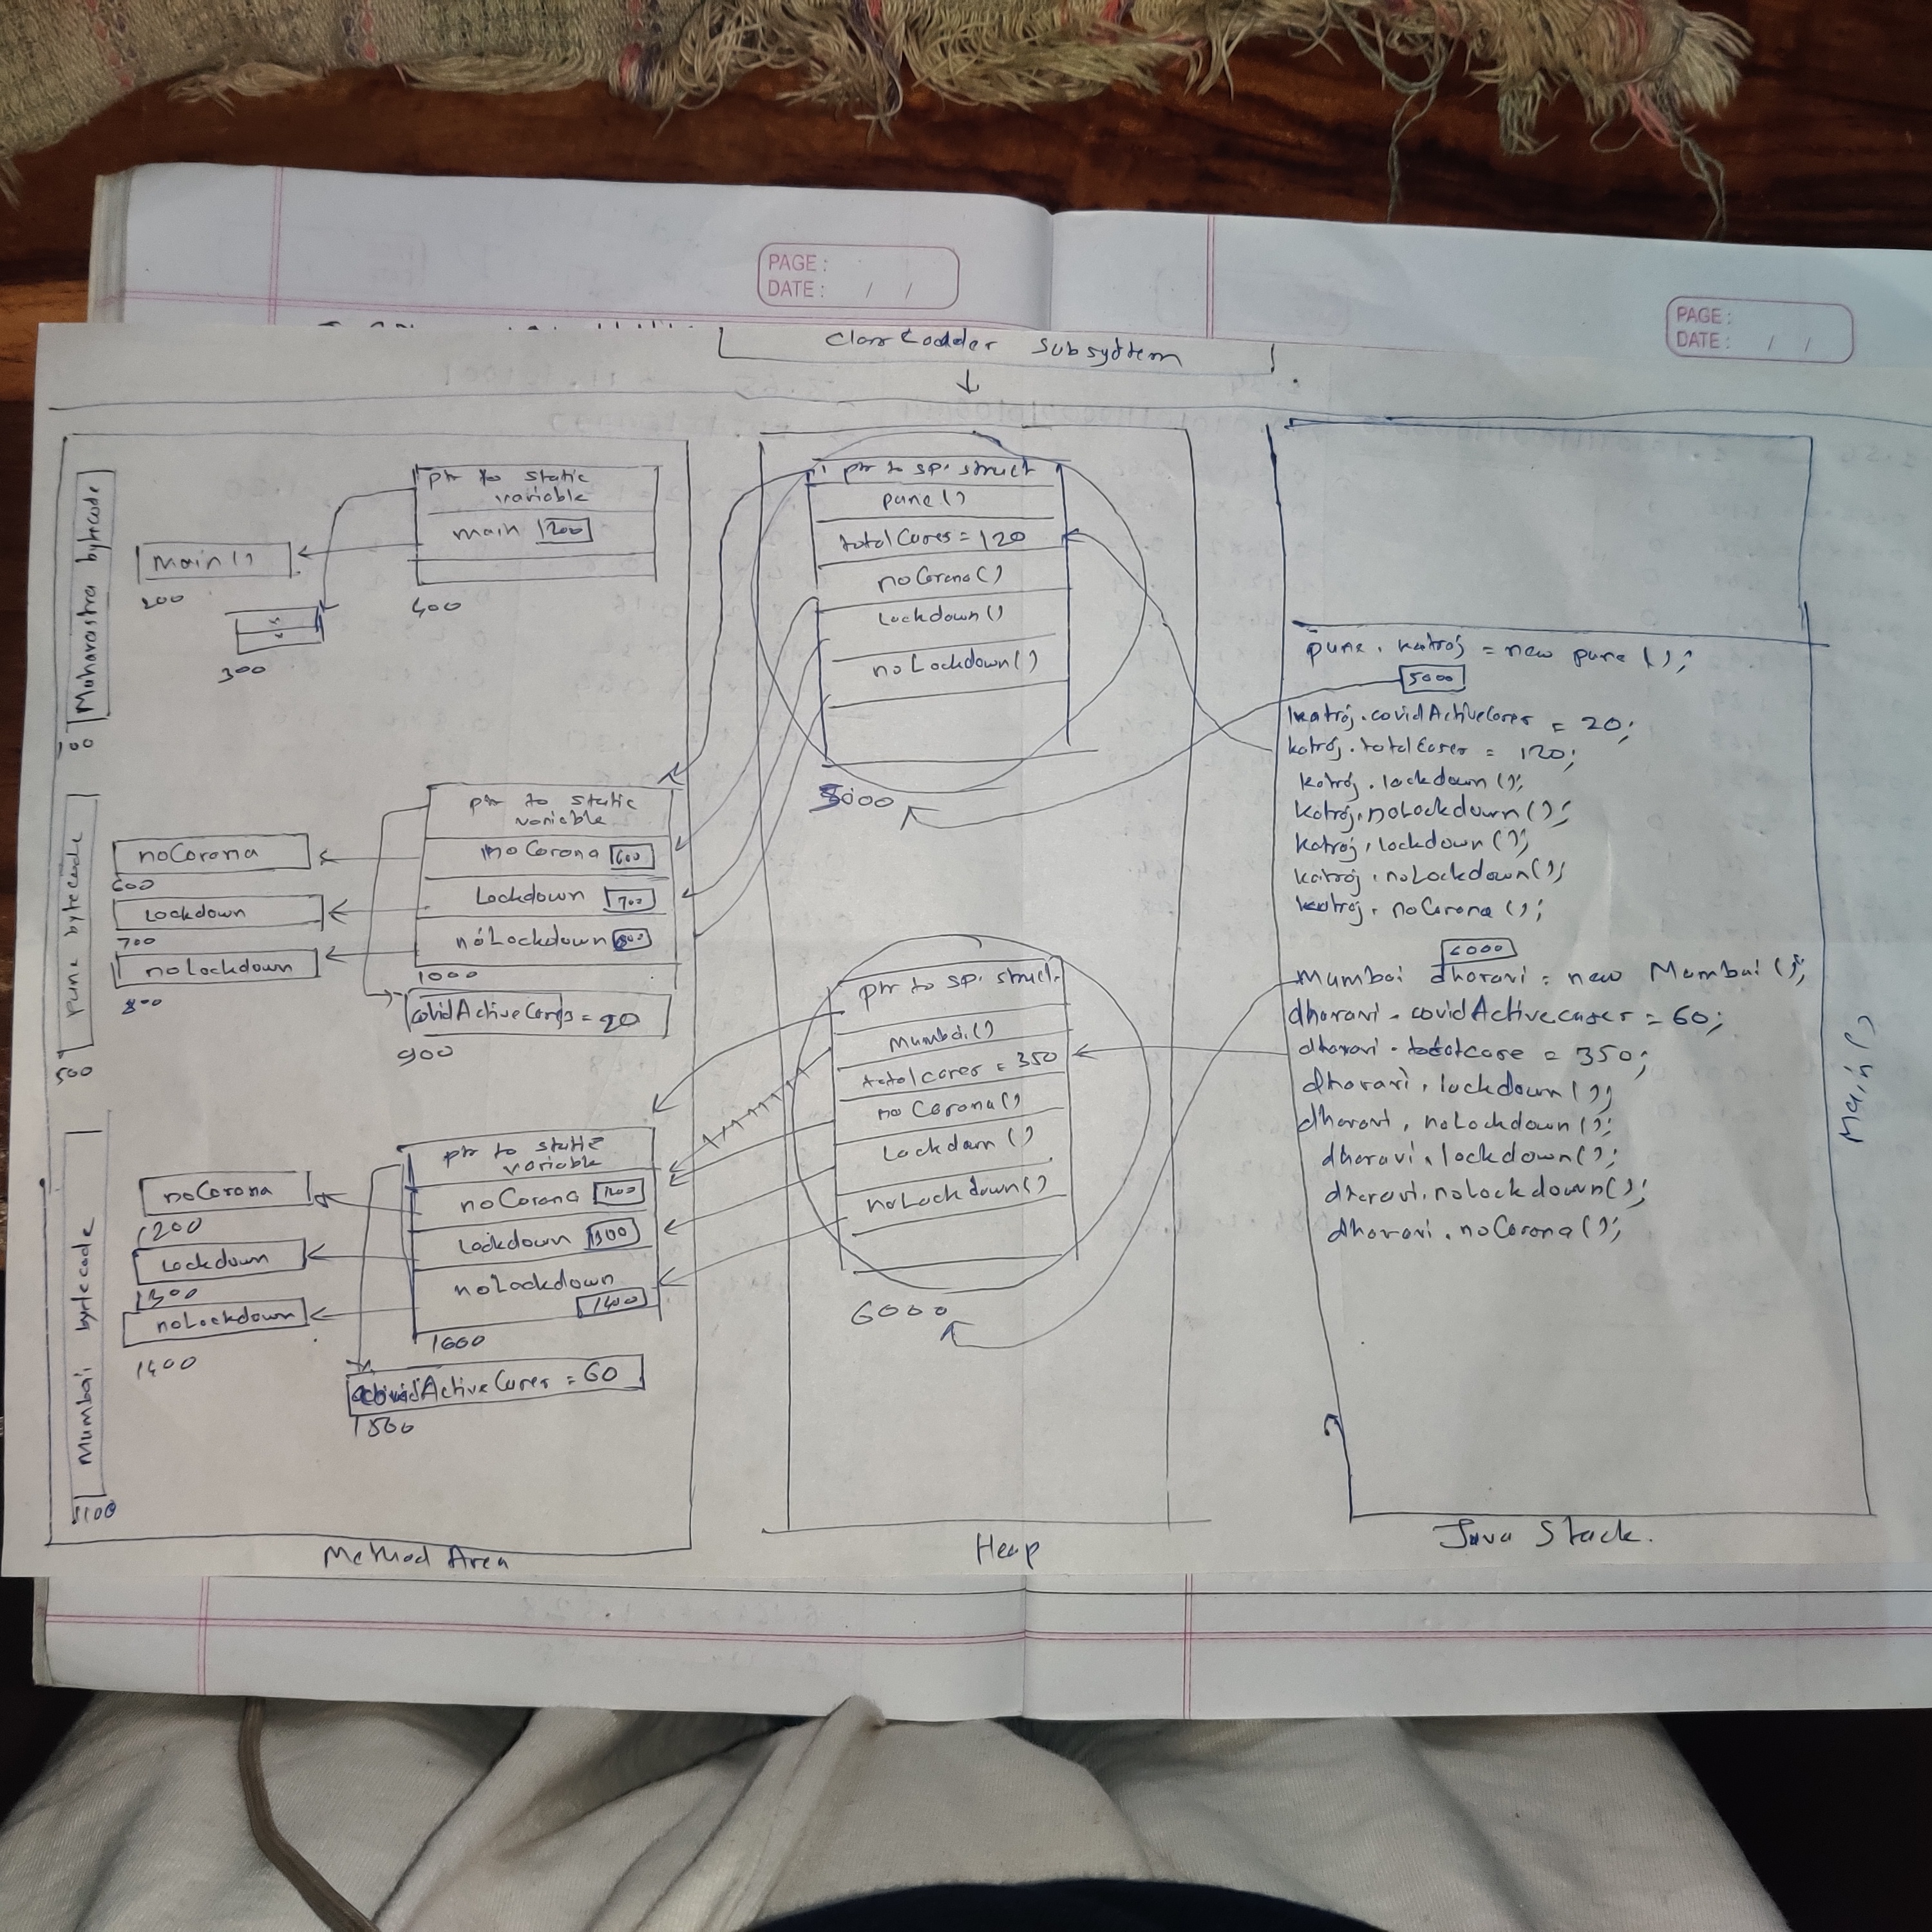 PAGE :
DATE : / /
PAGE :
DATE : / /
ClassLoader Subsystem
Maharastra bytecode
ptr to static
variable
main 200
main ()
200
300
400
pune bytecode
500
ptr to static
variable
noCorona 600
Lockdown 700
noLockdown 800
1000
noCorona
600
Lockdown
700
noLockdown
800
covidActiveCases = 20
900
Mumbai bytecode
1100
ptr to static
variable
noCorona 1200
Lockdown 1300
noLockdown
1400
1600
noCorona
1200
Lockdown
1300
noLockdown
1400
covidActiveCases = 60
1500
Method Area
ptr to sp. struct
pune ()
totalCases = 120
noCorona ()
Lockdown ()
noLockdown ()
5000
ptr to sp. struct.
Mumbai ()
totalcases = 350
noCorona ()
Lockdown ()
noLockdown ()
6000
Heap
pune . katroj = new pune ();
5000
katroj . covidActiveCases = 20;
katroj . totalCases = 120;
katroj . lockdown ();
katroj . noLockdown ();
katroj . lockdown ();
katroj . noLockdown ();
katroj . noCorona ();
6000
Mumbai dharavi = new Mumbai ();
dharavi . covidActivecases = 60;
dharavi . totalcase = 350;
dharavi . lockdown ();
dharavi . noLockdown ();
dharavi . lockdown ();
dharavi . noLockdown ();
dharavi . noCorona ();
Main ()
Java Stack.